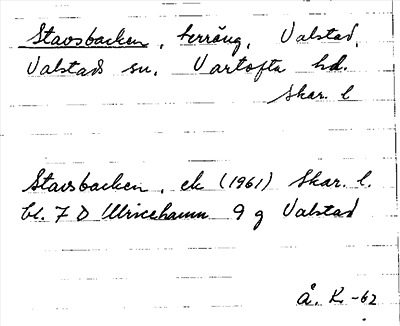 Stavsbacken, terräng, Valstad,
Valstads sn. Vartofta hd.
Skar. l
Stavsbacken, ek (1961) Skar. l.
bl. 7 D Ulricehamn 9 g Valstad
Å. K-62